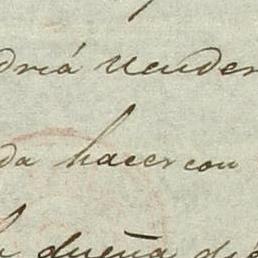 drá vender
da hacer con
dueña